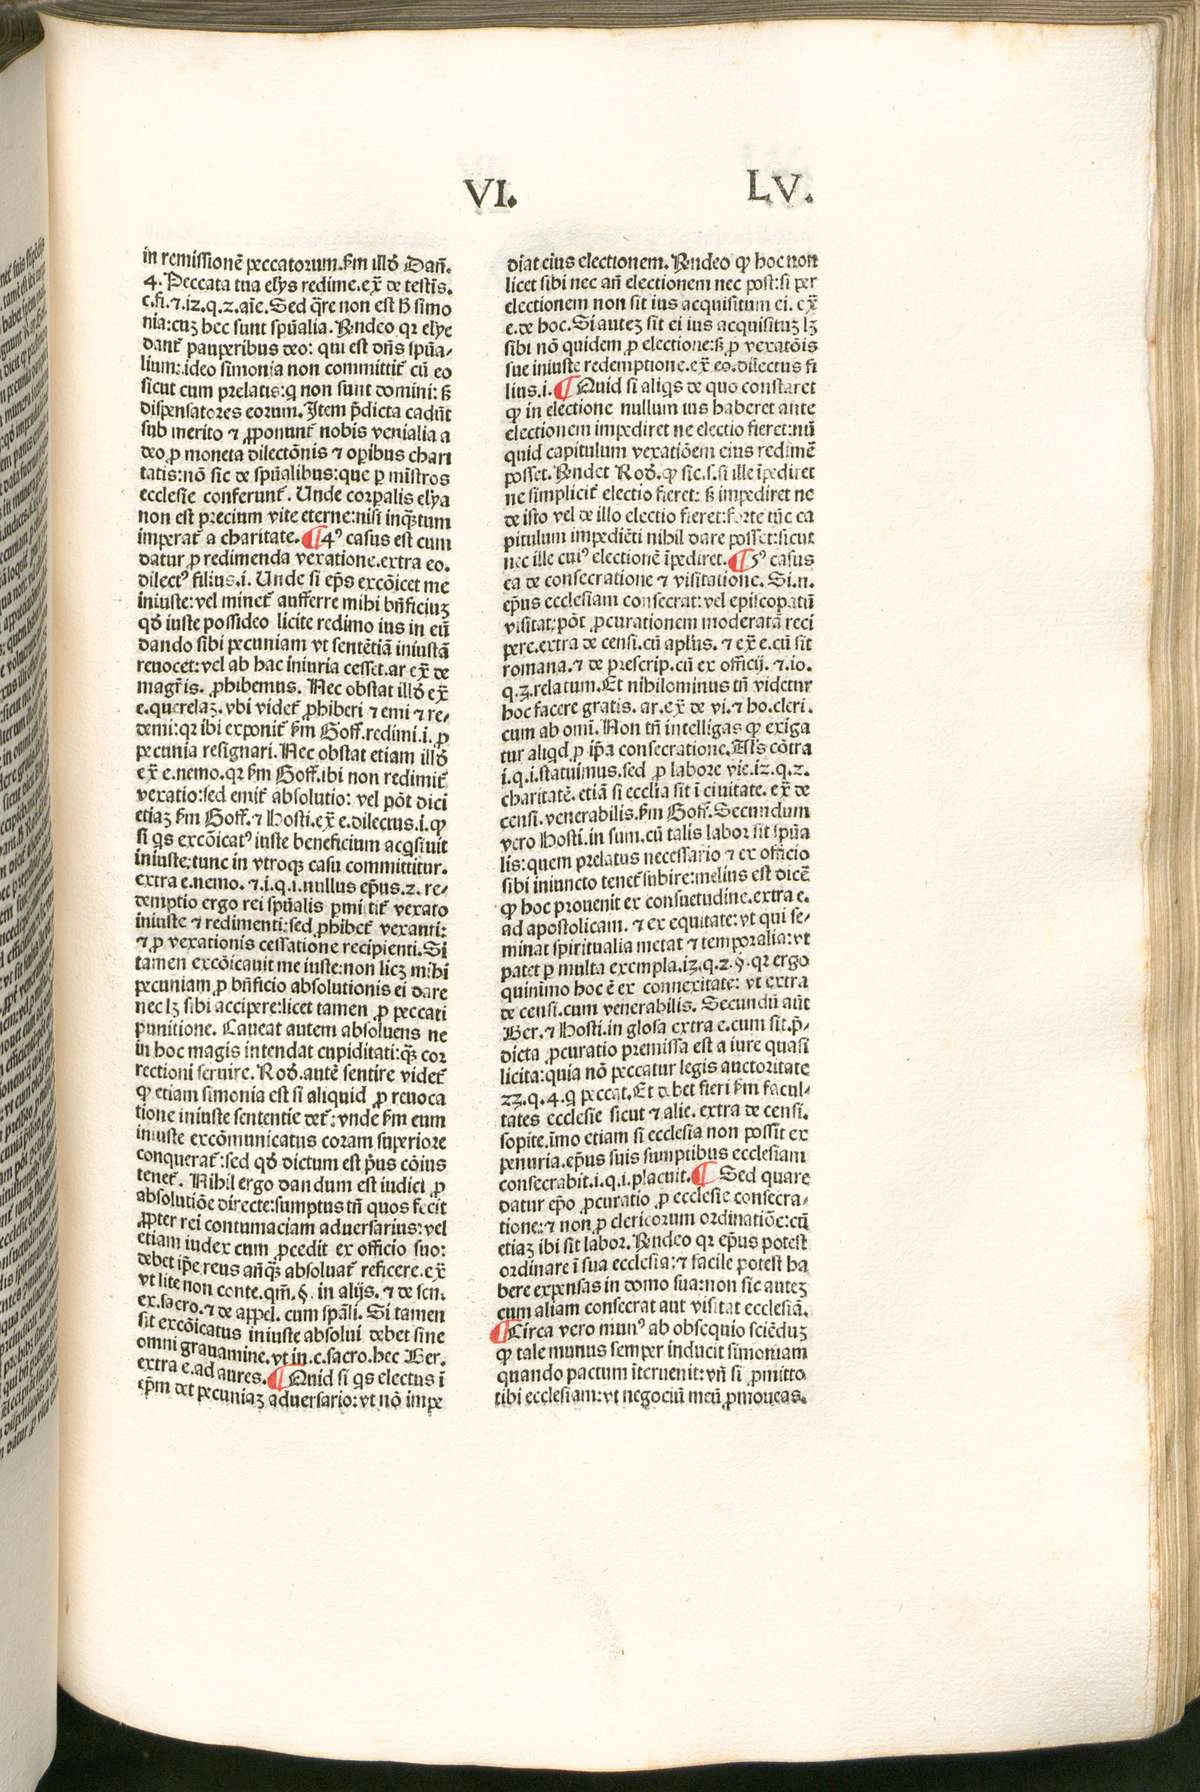 VI.
LV.
in remissionē peccatorum.ẜm illđ Dañ.
4. Peccata tua elẏs redime.ex̄ de testīs.
c.fi.⁊.12.q.2.aīe. Sed q̄re non est ħ simo
nia:cuȝ hec sunt spūalia. Rñdeo qꝛ elye
dant᷑ pauperibus deo: qui est dñs spūa⸗
lium:.ideo simonia non committit᷑ cū eo
sicut cum prelatis:q non sunt domini: ẜꝫ
dispensatores eorum. Item p̄dicta cadūt
sub merito ⁊ ꝓponunt᷑ nobis venialia a
deo ꝓ moneta dilectōnis ⁊ oꝑibus chari
tatis:nō sic de spūalibus:que ꝑ mīstros
ecclesie conferunt᷑. Unde corꝑalis elya
non est precium vite eterne:nisi inqȝtum
imperat᷑ a charitate. ¶4ꝰ casus est cum
datur ꝓ redimenda vexatione.extra eo.
dilectꝰ filius.i. Unde si ep̄s excōicet me
iniuste:vel minet᷑ aufferre mihi bñficiuȝ
qđ iuste possideo licite redimo ius in eū
dando sibi pecuniam vt sentētiā iniustā
reuocet:vel ab hac iniuria cesset.ar ex̄ de
magr̄is. ꝓhibemus. Nec obstat illđ ex̄
e.querelaȝ.vbi videt᷑ ꝓhiberi ⁊ emi ⁊ re⸗
demi:qꝛ ibi exponit᷑ ẜm Goff.redimi.i. ꝓ
pecunia resignari. Nec obstat etiam illđ
ex̄ e.nemo.qꝛ ẜm Goff.ibi non redimit᷑
vexatio:sed emit᷑ absolutio: vel pōt dici
etiaȝ ẜm Goff.⁊ Hosti.ex̄ e.dilectus.i.ꝙ
si qs excōicatꝰ iuste beneficium acqsiuit
iniuste:tunc in vtroqȝ casu committitur.
extra e.nemo. ⁊.i.q.i.nullus ep̄us.2. re⸗
demptio ergo rei spūalis ꝑmittit᷑ vexato
iniuste ⁊ redimenti:sed ꝓhibet᷑ vexanti:
⁊ ꝓ vexationis cessatione recipienti. Si
tamen excōicauit me iuste:non licȝ mihi
pecuniam ꝓ bñficio absolutionis ei dare
nec lȝ sibi accipere:licet tamen ꝓ peccati
punitione. Caueat autem absoluens ne
in hoc magis intendat cupiditati:qȝ cor
rectioni seruire. Rođ.autē sentire videt᷑
ꝙ etiam simonia est si aliquid ꝓ reuoca
tione iniuste sententie det᷑:vnde ẜm eum
iniuste excōmunicatus coram superiore
conquerat᷑:sed qđ dictum est p̄us cōius
tenet᷑. Nihil ergo dandum est iudici ꝓ
absolutiōe directe:sumptus tñ quos fecit
ꝓpter rei contumaciam aduersarius:vel
etiam iudex cum ꝓcedit ex officio suo:
debet ip̄e reus añqȝ absoluat᷑ reficere.ex̄
vt lite non conte.qm̄.§. in alijs. ⁊ de sen.
ex.sacro.⁊ de appel. cum spāli. Si tamen
sit excōicatus iniuste absolui debet sine
omni grauamine.vt in.c.sacro.hec Ber.
extra e.ad aures. ¶Quid si qs electus ī
ep̄m det pecuniaȝ aduersario:vt nō impe
diat eius electionem. Rñdeo ꝙ hoc non
licet sibi nec añ electionem nec post:si per
electionem non sit ius acquisitum ei. ex̄
e.de hoc. Si autez sit ei ius acquisituȝ lȝ
sibi nō quidem ꝓ electione:ẜꝫ ꝓ vexatōis
sue iniuste redemptione.ex̄ eo.dilectus fi
lius.i. ¶Quid si aliqs de quo constaret
ꝙ in electione nullum ius haberet ante
electionem impediret ne electio fieret:nū
quid capitulum vexatiōem eius redimē
posset. Rñdet Rođ.ꝙ sic.s.si ille īpediret
ne simplicit᷑ electio fieret: ẜꝫ impediret ne
de isto vel de illo electio fieret:forte tūc ca
pitulum impediēti nihil dare posset:sicut
nec ille cuiꝰ electionē īpediret. ¶5ꝰ casus
ea de consecratione ⁊ visitatione. Si.n.
ep̄us ecclesiam consecrat:vel episcopatū
visitat:pōt ꝓcurationem moderatā reci
pere.extra de censi.cū aplūs. ⁊ ex̄ e.cū sit
romana.⁊ de prescrip.cū ex officij. ⁊.10.
q.3.relatum.Et nihilominus tñ videtur
hoc facere gratis. ar.ex̄ de vi.⁊ ho.cleri.
cum ab omī. Non tñ intelligas ꝙ exiga
tur aliqd ꝓ ip̄a consecratione.Al̄s cōtra
i.q.i.statuimus.sed ꝓ labore vie.12.q.2.
charitatē. etiā si ecclia sit ī ciuitate. ex̄ de
censi.venerabilis.ẜm Goff. Secundum
vero Hosti.in sum.cū talis labor sit spūa
lis:quem prelatus necessario ⁊ ex officio
sibi iniuncto tenet᷑ subire:melius est dicē
ꝙ hoc prouenit ex consuetudine.extra e.
ad apostolicam. ⁊ ex equitate: vt qui se⸗
minat spiritualia metat ⁊ temporalia:vt
patet ꝑ multa exempla.12.q.2.§.qꝛ ergo
quinimo hoc ē ex connexitate: vt extra
de censi.cum venerabilis. Secundū aūt
Ber.⁊ Hosti.in glosa extra e.cum sit.p̄⸗
dicta ꝓcuratio premissa est a iure quasi
licita:quia nō peccatur legis auctoritate
23.q.4.q peccat.Et debet fieri ẜm facul⸗
tates ecclesie sicut ⁊ alie. extra de censi.
sopite.īmo etiam si ecclesia non possit ex
penuria.ep̄us suis sumptibus ecclesiam
consecrabit.i.q.i.placuit. ¶Sed quare
datur ep̄o ꝓcuratio ꝓ ecclesie consecra⸗
tione:⁊ non ꝓ clericorum ordinatiōe:cū
etiaȝ ibi sit labor. Rñdeo qꝛ ep̄us potest
ordinare ī sua ecclesia:⁊ facile potest ha
bere expensas in domo sua:non sic autez
cum aliam consecrat aut visitat ecclesiā.
¶Circa vero munꝰ ab obsequio sciēduȝ
ꝙ tale munus semper inducit simoniam
quando pactum īteruenit:vñ si ꝓmitto
tibi ecclesiam:vt negociū meū ꝓmoueas.